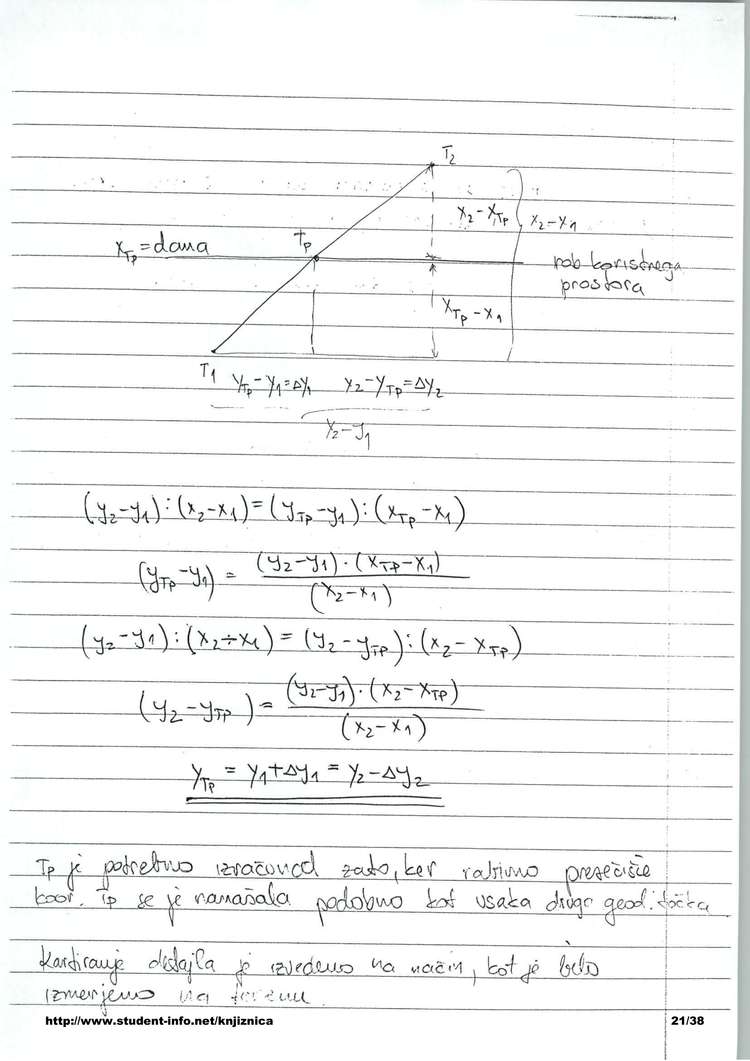 T₂
x₂-x_Tp
x₂-x₁
x_Tp = dana
Tp
rob koristnega
prostora
x_Tp-x₁
T₁
y_Tp-y₁=Δy₁ y₂-y_Tp=Δy₂
y₂-y₁
(y₂-y₁):(x₂-x₁)=(y_Tp-y₁):(x_Tp-x₁)
(y_Tp-y₁) = (y₂-y₁)·(x_Tp-x₁)
(x₂-x₁)
(y₂-y₁):(x₂÷x₁) = (y₂-y_Tp):(x₂-x_Tp)
(y₂-y_Tp) = (y₂-y₁)·(x₂-x_Tp)
(x₂-x₁)
y_Tp = y₁+Δy₁ = y₂-Δy₂
Tp je potrebno zato, ker rabimo presečišče
koor. Tp se je nanašala podobno kot vsaka druga geod. točka
Kartiranje detajla je izvedeno na način, kot je bilo
izmerjeno na terenu.
http://www.student-info.net/knjiznica
21/38